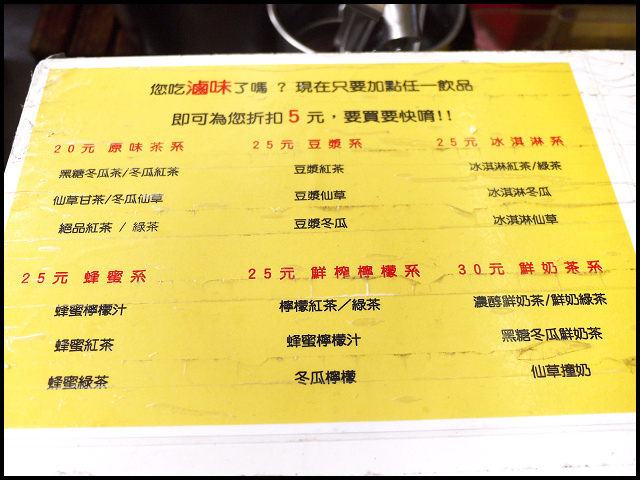 您吃滷味了嗎 ? 現在只要加點任一飲品
即可為您折扣 5 元，要買要快唷!!
20元 原味茶系
黑糖冬瓜茶/冬瓜紅茶
仙草甘茶/冬瓜仙草
絕品紅茶 / 綠茶
25元 豆漿系
豆漿紅茶
豆漿仙草
豆漿冬瓜
25元 冰淇淋系
冰淇淋紅茶/綠茶
冰淇淋冬瓜
冰淇淋仙草
25元 蜂蜜系
蜂蜜檸檬汁
蜂蜜紅茶
蜂蜜綠茶
25元 鮮榨檸檬系
檸檬紅茶／綠茶
蜂蜜檸檬汁
冬瓜檸檬
30元 鮮奶茶系
濃醇鮮奶茶/鮮奶綠茶
黑糖冬瓜鮮奶茶
仙草撞奶